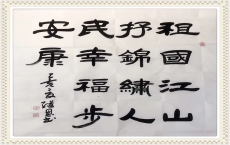 祖國江山
抒錦繡人
民幸福步
安康